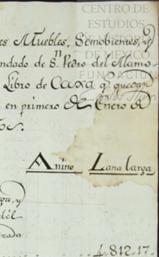 CENTRO DE
ESTUDIOS
DE MÉXICO
FUNDACIÓN
es Muebles, Semobienes, y
ndado de S. Pedro del Alamo
Libro de Caxa q. quedan
en primero de Enero de
os.
Anino Lana larga
rada
4812.17.